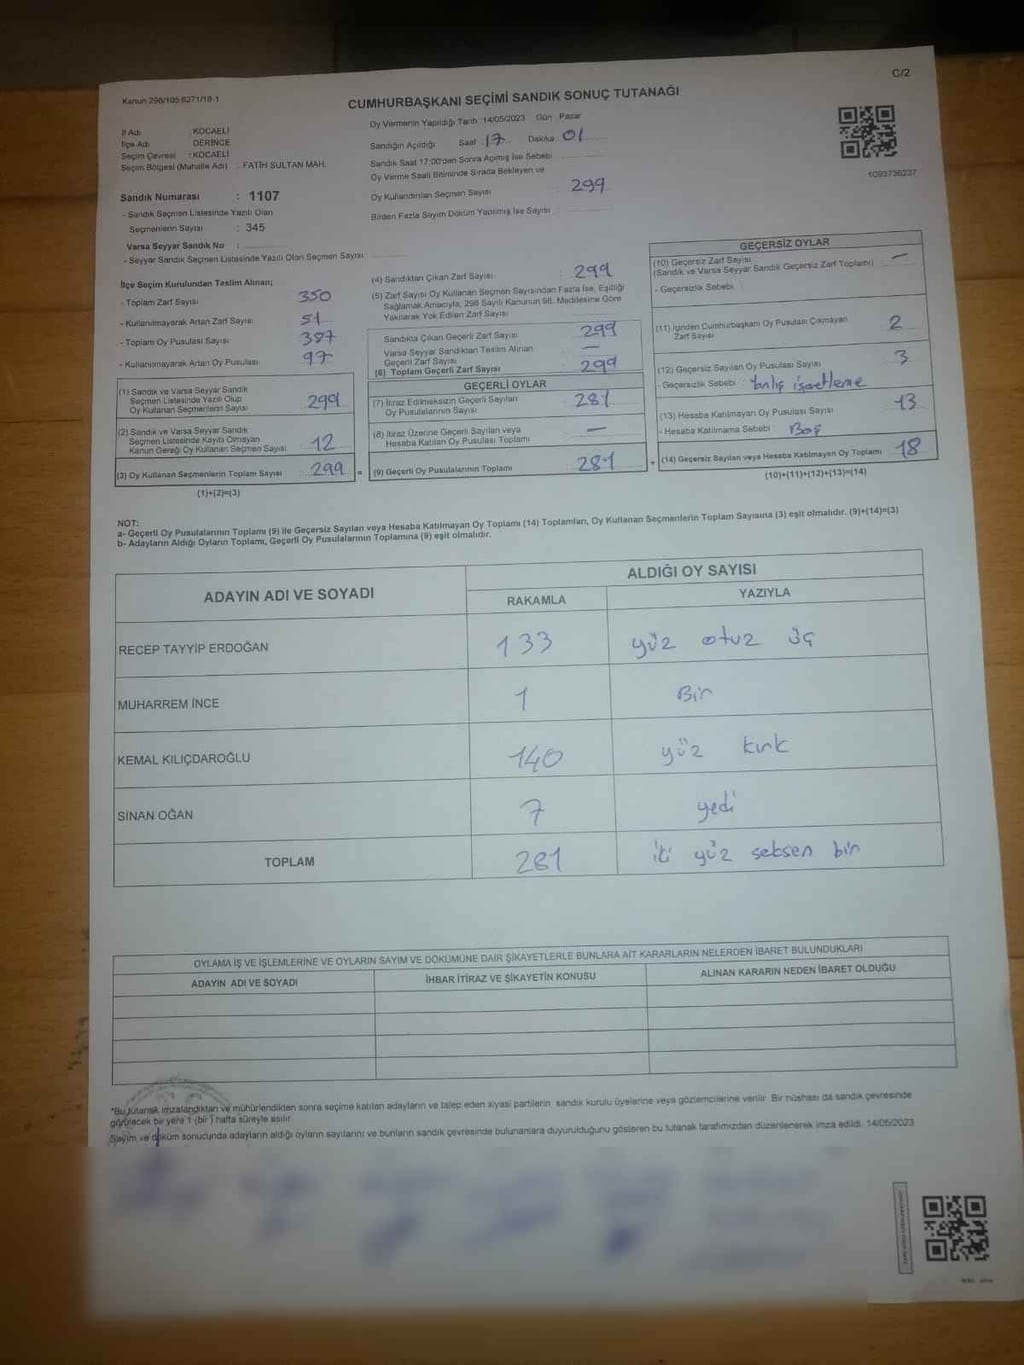 C/2
Kanun 298/105-6271/18-1
CUMHURBAŞKANI SEÇİMİ SANDIK SONUÇ TUTANAĞI
İl Adı : KOCAELİ
İlçe Adı : DERİNCE
Seçim Çevresi : KOCAELİ
Seçim Bölgesi (Mahalle Adı) : FATİH SULTAN MAH.
Sandık Numarası : 1107
- Sandık Seçmen Listesinde Yazılı Olan
Seçmenlerin Sayısı : 345
Varsa Seyyar Sandık No :
- Seyyar Sandık Seçmen Listesinde Yazılı Olan Seçmen Sayısı
Oy Vermenin Yapıldığı Tarih :14/05/2023 Gün : Pazar
Sandığın Açıldığı Saat 17 Dakika 01
Sandık Saat 17:00'den Sonra Açılmış İse Sebebi
Oy Verme Saati Bitiminde Sırada Bekleyen ve
Oy Kullandırılan Seçmen Sayısı : 299
Birden Fazla Sayım Döküm Yapılmış İse Sayısı
1093736237
İlçe Seçim Kurulundan Teslim Alınan;
- Toplam Zarf Sayısı 350
- Kullanılmayarak Artan Zarf Sayısı 51
- Toplam Oy Pusulası Sayısı 387
- Kullanılmayarak Artan Oy Pusulası 97
(1) Sandık ve Varsa Seyyar Sandık
Seçmen Listesinde Yazılı Olup
Oy Kullanan Seçmenlerin Sayısı 299
(2) Sandık ve Varsa Seyyar Sandık
Seçmen Listesinde Kayıtlı Olmayan
Kanun Gereği Oy Kullanan Seçmen Sayısı 12
(3) Oy Kullanan Seçmenlerin Toplam Sayısı 299 =
(1)+(2)=(3)
(4) Sandıktan Çıkan Zarf Sayısı : 299
(5) Zarf Sayısı Oy Kullanan Seçmen Sayısından Fazla İse, Eşitliği
Sağlamak Amacıyla, 298 Sayılı Kanunun 98. Maddesine Göre
Yakılarak Yok Edilen Zarf Sayısı
Sandıkta Çıkan Geçerli Zarf Sayısı : 299
Varsa Seyyar Sandıktan Teslim Alınan
Geçerli Zarf Sayısı —
(6) Toplam Geçerli Zarf Sayısı 299
GEÇERLİ OYLAR
(7) İtiraz Edilmeksizin Geçerli Sayılan
Oy Pusulalarının Sayısı 281
(8) İtiraz Üzerine Geçerli Sayılan veya
Hesaba Katılan Oy Pusulası Toplamı —
(9) Geçerli Oy Pusulalarının Toplamı 281 +
GEÇERSİZ OYLAR
(10) Geçersiz Zarf Sayısı —
(Sandık ve Varsa Seyyar Sandık Geçersiz Zarf Toplamı)
- Geçersizlik Sebebi
(11) İçinden Cumhurbaşkanı Oy Pusulası Çıkmayan 2
Zarf Sayısı
(12) Geçersiz Sayılan Oy Pusulası Sayısı 3
- Geçersizlik Sebebi : Yanlış işaretleme
(13) Hesaba Katılmayan Oy Pusulası Sayısı 13
- Hesaba Katılmama Sebebi : Boş
(14) Geçersiz Sayılan veya Hesaba Katılmayan Oy Toplamı 18
(10)+(11)+(12)+(13)=(14)
NOT:
a- Geçerli Oy Pusulalarının Toplamı (9) ile Geçersiz Sayılan veya Hesaba Katılmayan Oy Toplamı (14) Toplamları, Oy Kullanan Seçmenlerin Toplam Sayısına (3) eşit olmalıdır. (9)+(14)=(3)
b- Adayların Aldığı Oyların Toplamı, Geçerli Oy Pusulalarının Toplamına (9) eşit olmalıdır.
ADAYIN ADI VE SOYADI ALDIĞI OY SAYISI
RAKAMLA YAZIYLA
RECEP TAYYİP ERDOĞAN 133 yüz otuz üç
MUHARREM İNCE 1 Bir
KEMAL KILIÇDAROĞLU 140 yüz kırk
SİNAN OĞAN 7 yedi
TOPLAM 281 iki yüz seksen bir
OYLAMA İŞ VE İŞLEMLERİNE VE OYLARIN SAYIM VE DÖKÜMÜNE DAİR ŞİKAYETLERLE BUNLARA AİT KARARLARIN NELERDEN İBARET BULUNDUKLARI
ADAYIN ADI VE SOYADI İHBAR İTİRAZ VE ŞİKAYETİN KONUSU ALINAN KARARIN NEDEN İBARET OLDUĞU
*Bu tutanak imzalandıktan ve mühürlendikten sonra seçime katılan adayların ve talep eden siyasi partilerin sandık kurulu üyelerine veya gözlemcilerine verilir. Bir nüshası da sandık çevresinde
görülecek bir yere 1 (bir) hafta süreyle asılır.
Sayım ve döküm sonucunda adayların aldığı oyların sayılarını ve bunların sandık çevresinde bulunanlara duyurulduğunu gösteren bu tutanak tarafımızdan düzenlenerek imza edildi. 14/05/2023